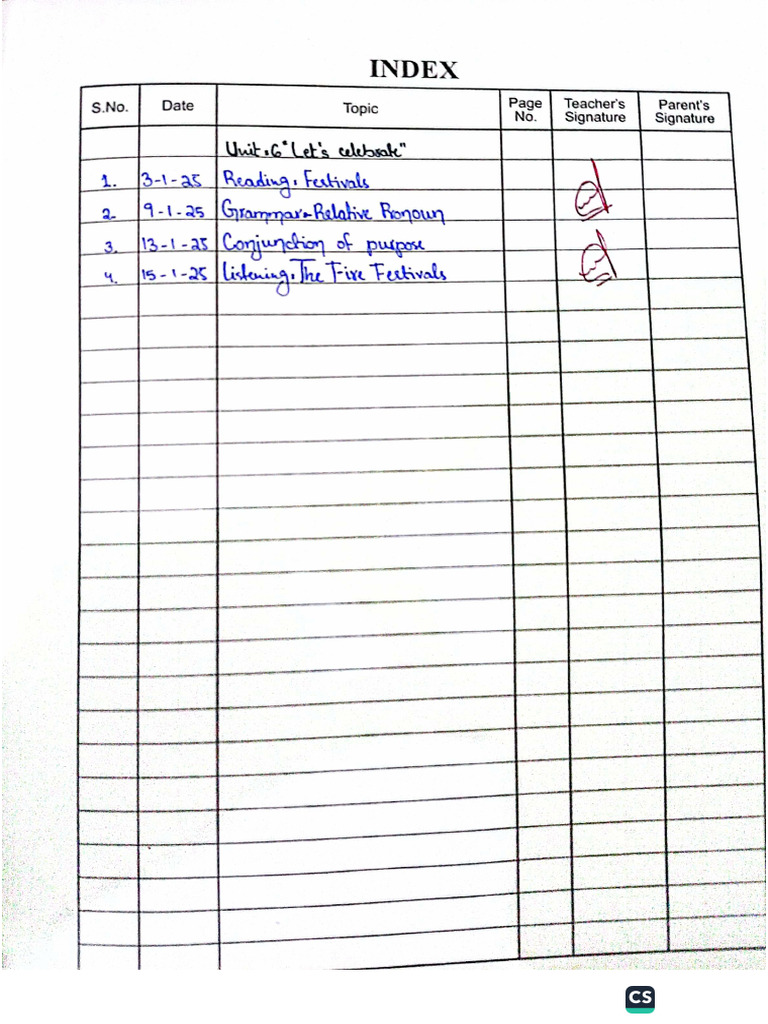 INDEX
S.No. Date Topic Page No. Teacher's Signature Parent's Signature
Unit:6 "Let's celebrate"
1. 3-1-25 Reading: Festivals
2. 9-1-25 Grammar: Relative Pronoun
3. 13-1-25 Conjunction of purpose
4. 15-1-25 Listening: The Fire Festivals
CS